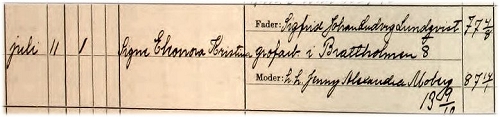 Fader: Sigfrid Johan Ludvig Lundqvist 77 4/8
juli 11 1 Signe Eleonora Kristina grofarb. i Brattholmen 8
Moder: h. h. Jenny Alexandra Moberg 87 14/1
19 19/10